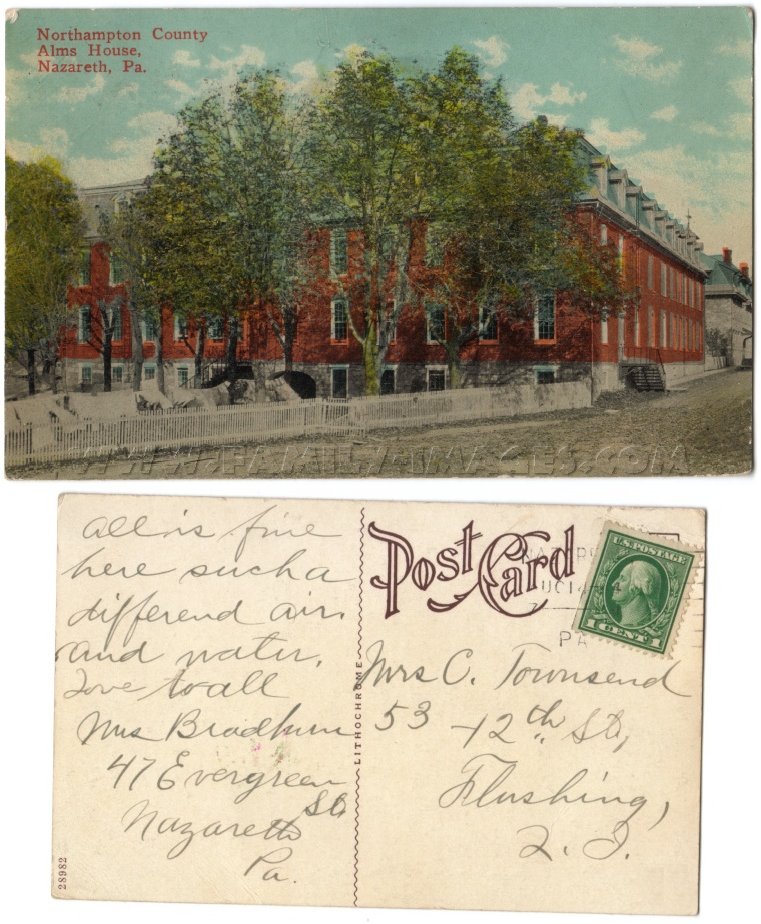 Northampton County
Alms House,
Nazareth, Pa.
WWW.FAMILY-IMAGES.COM
all is fine
here such a
differend air.
and water.
Love to all
Mrs
47 Evergreen
St.
Nazareth
Pa.
28982
LITHOCHROME
Post Card
PA
U.S. POSTAGE
1 CENT 1
Mrs C. Townsend
53 -12th St,
Flushing,
L. I.